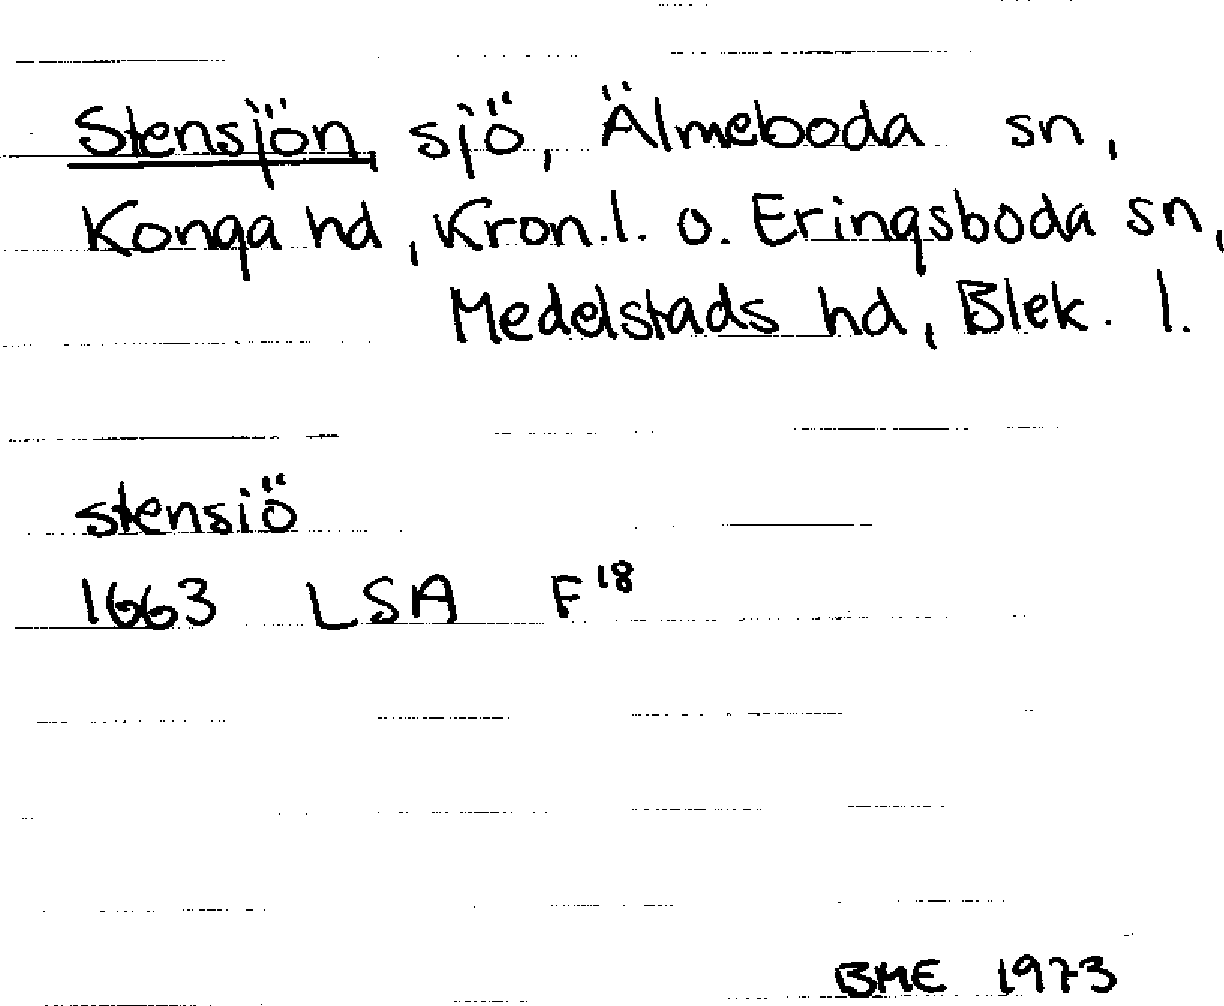 Stensjön, sjö, Älmeboda sn,
Konga hd, Kron.l. o. Eringsboda sn,
Medelstads hd, Blek. l.
stensiö
1663 LSA F18
BME 1973